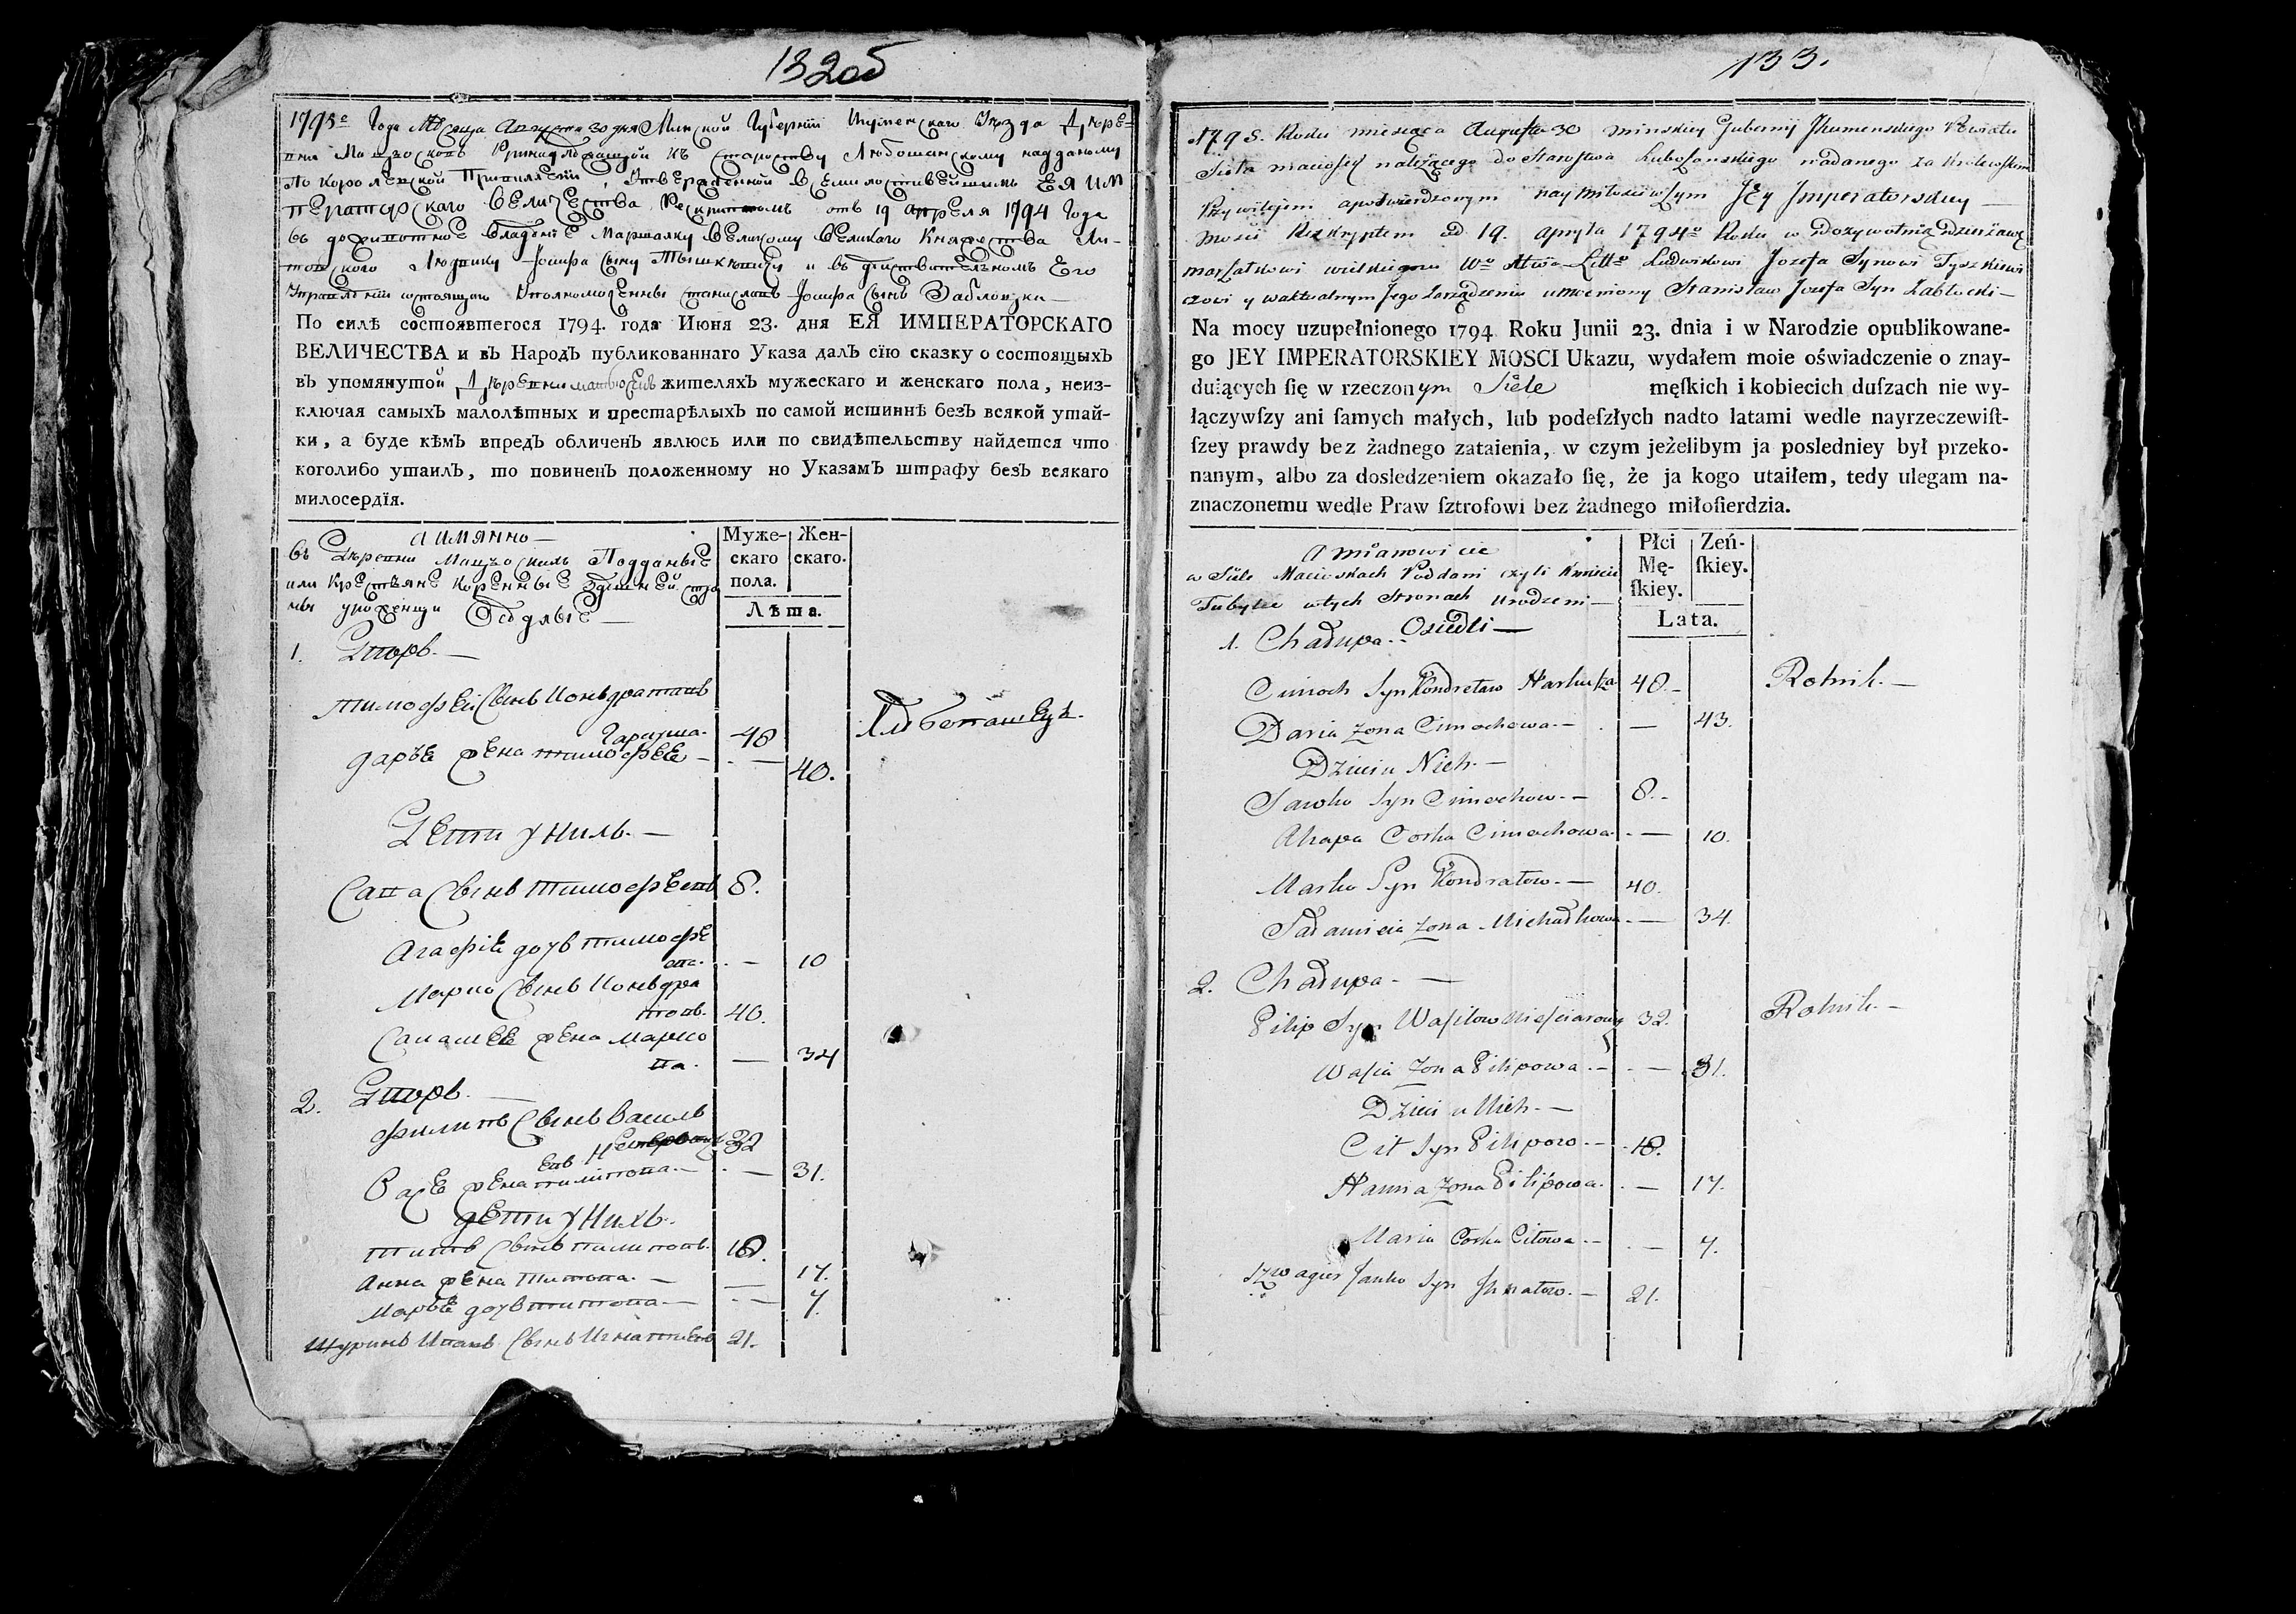 132об
1795е Года Мѣсяца Августа 30 дня Минской Губернїи Игуменскаго Уѣзда Дѣре-
вни къ Староству Любошанскому наданому
по королевской Привилегїи, Утвержденной Всемилостивейшимъ ЕЯ ИМ
ператорскаго Величества Рескриптомъ отъ 19 апреля 1794 Года
въ Владѣнїе Маршалку Великому Великаго Княжества Ли-
товского Людвику Іосифа Сыну Тышкѣвичу и въ действителномъ Его
Управленїи состоящаго Уполномоченны станиславъ Іосифа Сынъ Заблоцки —
По силѣ состоявшегося 1794. года Июня 23. дня ЕЯ ИМПЕРАТОРСКАГО
ВЕЛИЧЕСТВА и вЪ НародЪ публикованнаго Указа далЪ сїю сказку о состоящыхЪ
вЪ упомянутой Дѣревни жителяхЪ мужескаго и женскаго пола, неиз-
ключая самыхЪ малолѣтных и престарѣлыхЪ по самой истиннѣ безЪ всякой утай-
ки, а буде кѣмЪ впредЪ обличенЪ явлюсь или по свидѣтельству найдется что
коголибо утаилЪ, то повиненЪ положенному по УказамЪ штрафу безЪ всякаго
милосердїя.
А имянно —
въ Дѣревни Подданые
или Крестяне коренные здешней сто
роны уроженци Оседлые —
Муже-
скаго
пола.
Жен-
скаго.
Лѣта.
1. Дворъ. —
Тимофей Сынъ Конъдратавъ
Гаруша. 48 Хлѣбопашецъ.
Даръе жена тимофее — 40.
Дети у Нихъ. —
Сава Сынъ тимофеевъ 8.
Агафіе дочъ тимофе
ева. — 10
Марко Сынъ Конъдра
товъ. 40.
жена марко
ва. — 34
2. Дворъ. —
Филипъ Сынъ Василь
евъ 32
Васе жена пилипова. — 31.
дети у Нихъ.
Титъ Сынъ пилиповъ. 18.
Анна жена Титова. — 17.
Маръе дочъ титова. — 7.
Шуринъ Иванъ Сынъ Игнатиевъ 21.
133.
1795. Roku miesiąca Augusta 30 minskiey Gubernij Jhumenskiego Powiatu
Sioła należącego do Starostwa Lubosanskiego nadanego za Krolewskim
Przywilejem apotwierdzonym naymiłościwszym Jey Imperatorskiey —
Mosci Reskryptem od 19. apryla 1794o Roku w Dożywotnią Dzierżawę
marszałkowi wielkiemu Wo Litto Ludwikowi Jozefa Synowi Tyszkiewi
czowi y waktualnym Jego zarządzeniu umocniony Stanisław Jozefa Syn Zabłocki —
Na mocy uzupełnionego 1794 Roku Junii 23. dnia i w Narodzie opublikowane-
go JEY IMPERATORSKIEY MOSCI Ukazu, wydałem moie oświadczenie o znay-
duiących ſię w rzeczonym Siele męſkich i kobiecich duſzach nie wy-
łączywſzy ani ſamych małych, lub podeſzłych nadto latami wedle nayrzeczewiſt-
ſzey prawdy bez żadnego zataienia, w czym jeżelibym ja posledniey był przeko-
nanym, albo za dosledzeniem okazało ſię, że ja kogo utaiłem, tedy ulegam na-
znaczonemu wedle Praw ſztrofowi bez żadnego miłoſierdzia.
Amianowicie
w Siele Maciuskach Poddani czyli Kmiecie
Tubylce wtych Stronach Urodzeni —
Osiedli —
Płci
Mę-
ſkiey.
Zeń-
ſkiey.
Lata.
1. Chałupa. —
Cimoch Syn Kondratow Haruszka 48. — Rolnik. —
Daria Zona Cimochowa. — 43.
Dzieci u Nich. —
Sawka Syn Cimochow. — 8. —
Ahapa Corka Cimochowa. — 10.
Marko Syn Kondratow. — 40.
Zona — 34.
2. Chałupa. —
Pilip Syn Wasilow 32. Rolnik. —
Wasia Zona Pilipowa. — 31.
Dzieci u Nich. —
Cit Syn Pilipow — 18.
Hanna Zona Pilipowa. — 17.
Maria Corka Citowa. — 7.
Szwagier Janko Syn Ihnatow. — 21.